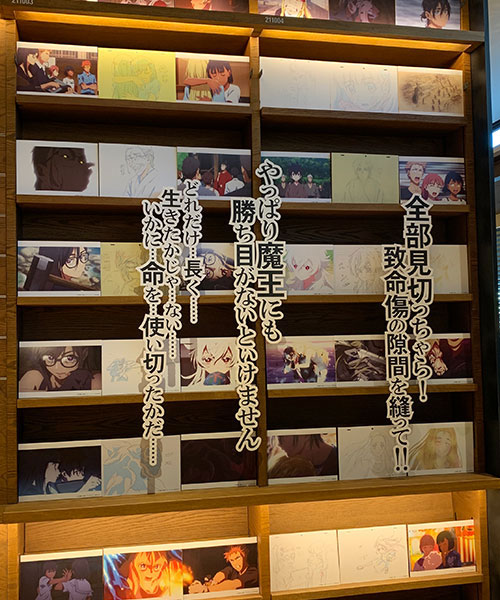 211003
211004
全部見切っちゃら!
致命傷の隙間を縫って!!
やっぱり魔王にも
勝ち目がないといけません
どれだけ…長く……
生きたかじゃ…ない……
いかに…命を…使い切ったかだ……